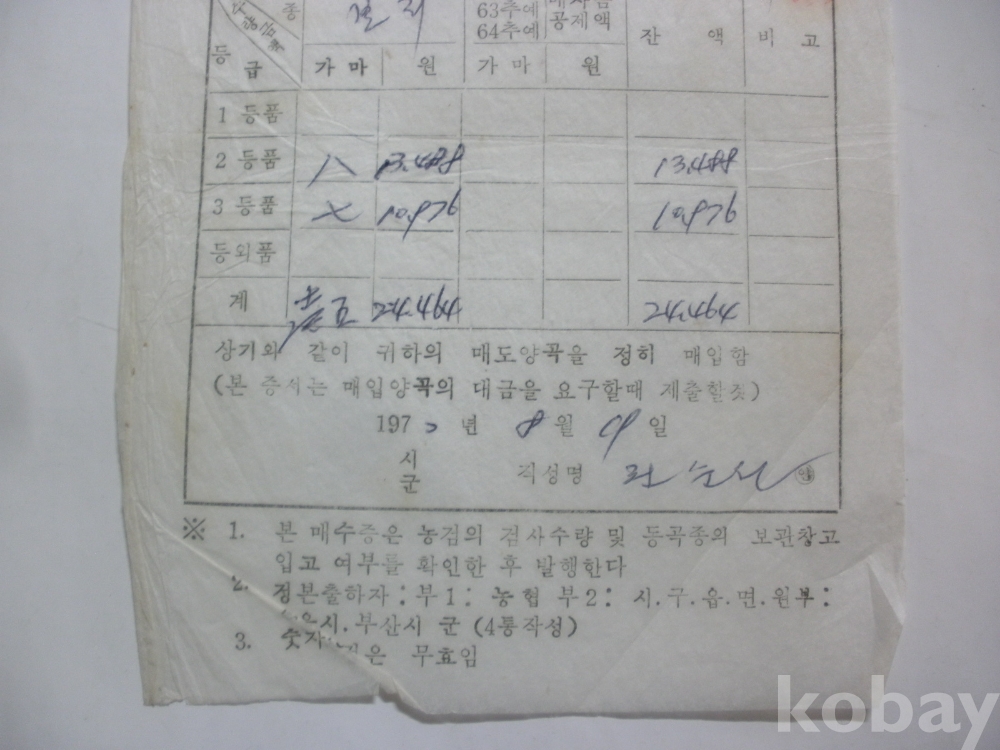 종 63추예
64추예 공제액
등급 가마 원 가마 원 잔 액 비고
1 등품
2 등품 八 13.488 13.488
3 등품 10.976 10.976
등외품
계 24.464 24.464
상기와 같이 귀하의 매도양곡을 정히 매입함
(본 증서는 매입양곡의 대금을 요구할때 제출할것)
197 년 8 월 일
시
군 직성명
※ 1. 본 매수증은 농검의 검사수량 및 등곡종의 보관창고
입고 여부를 확인한 후 발행한다
2. 정본출하자: 부1: 농협 부2: 시.구.읍.면.원부:
시.부산시 군 (4통작성)
3. 은 무효임
kobay